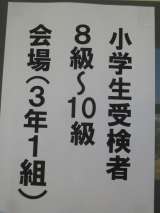 小学生受検者
8級～10級
会場(3年1組)